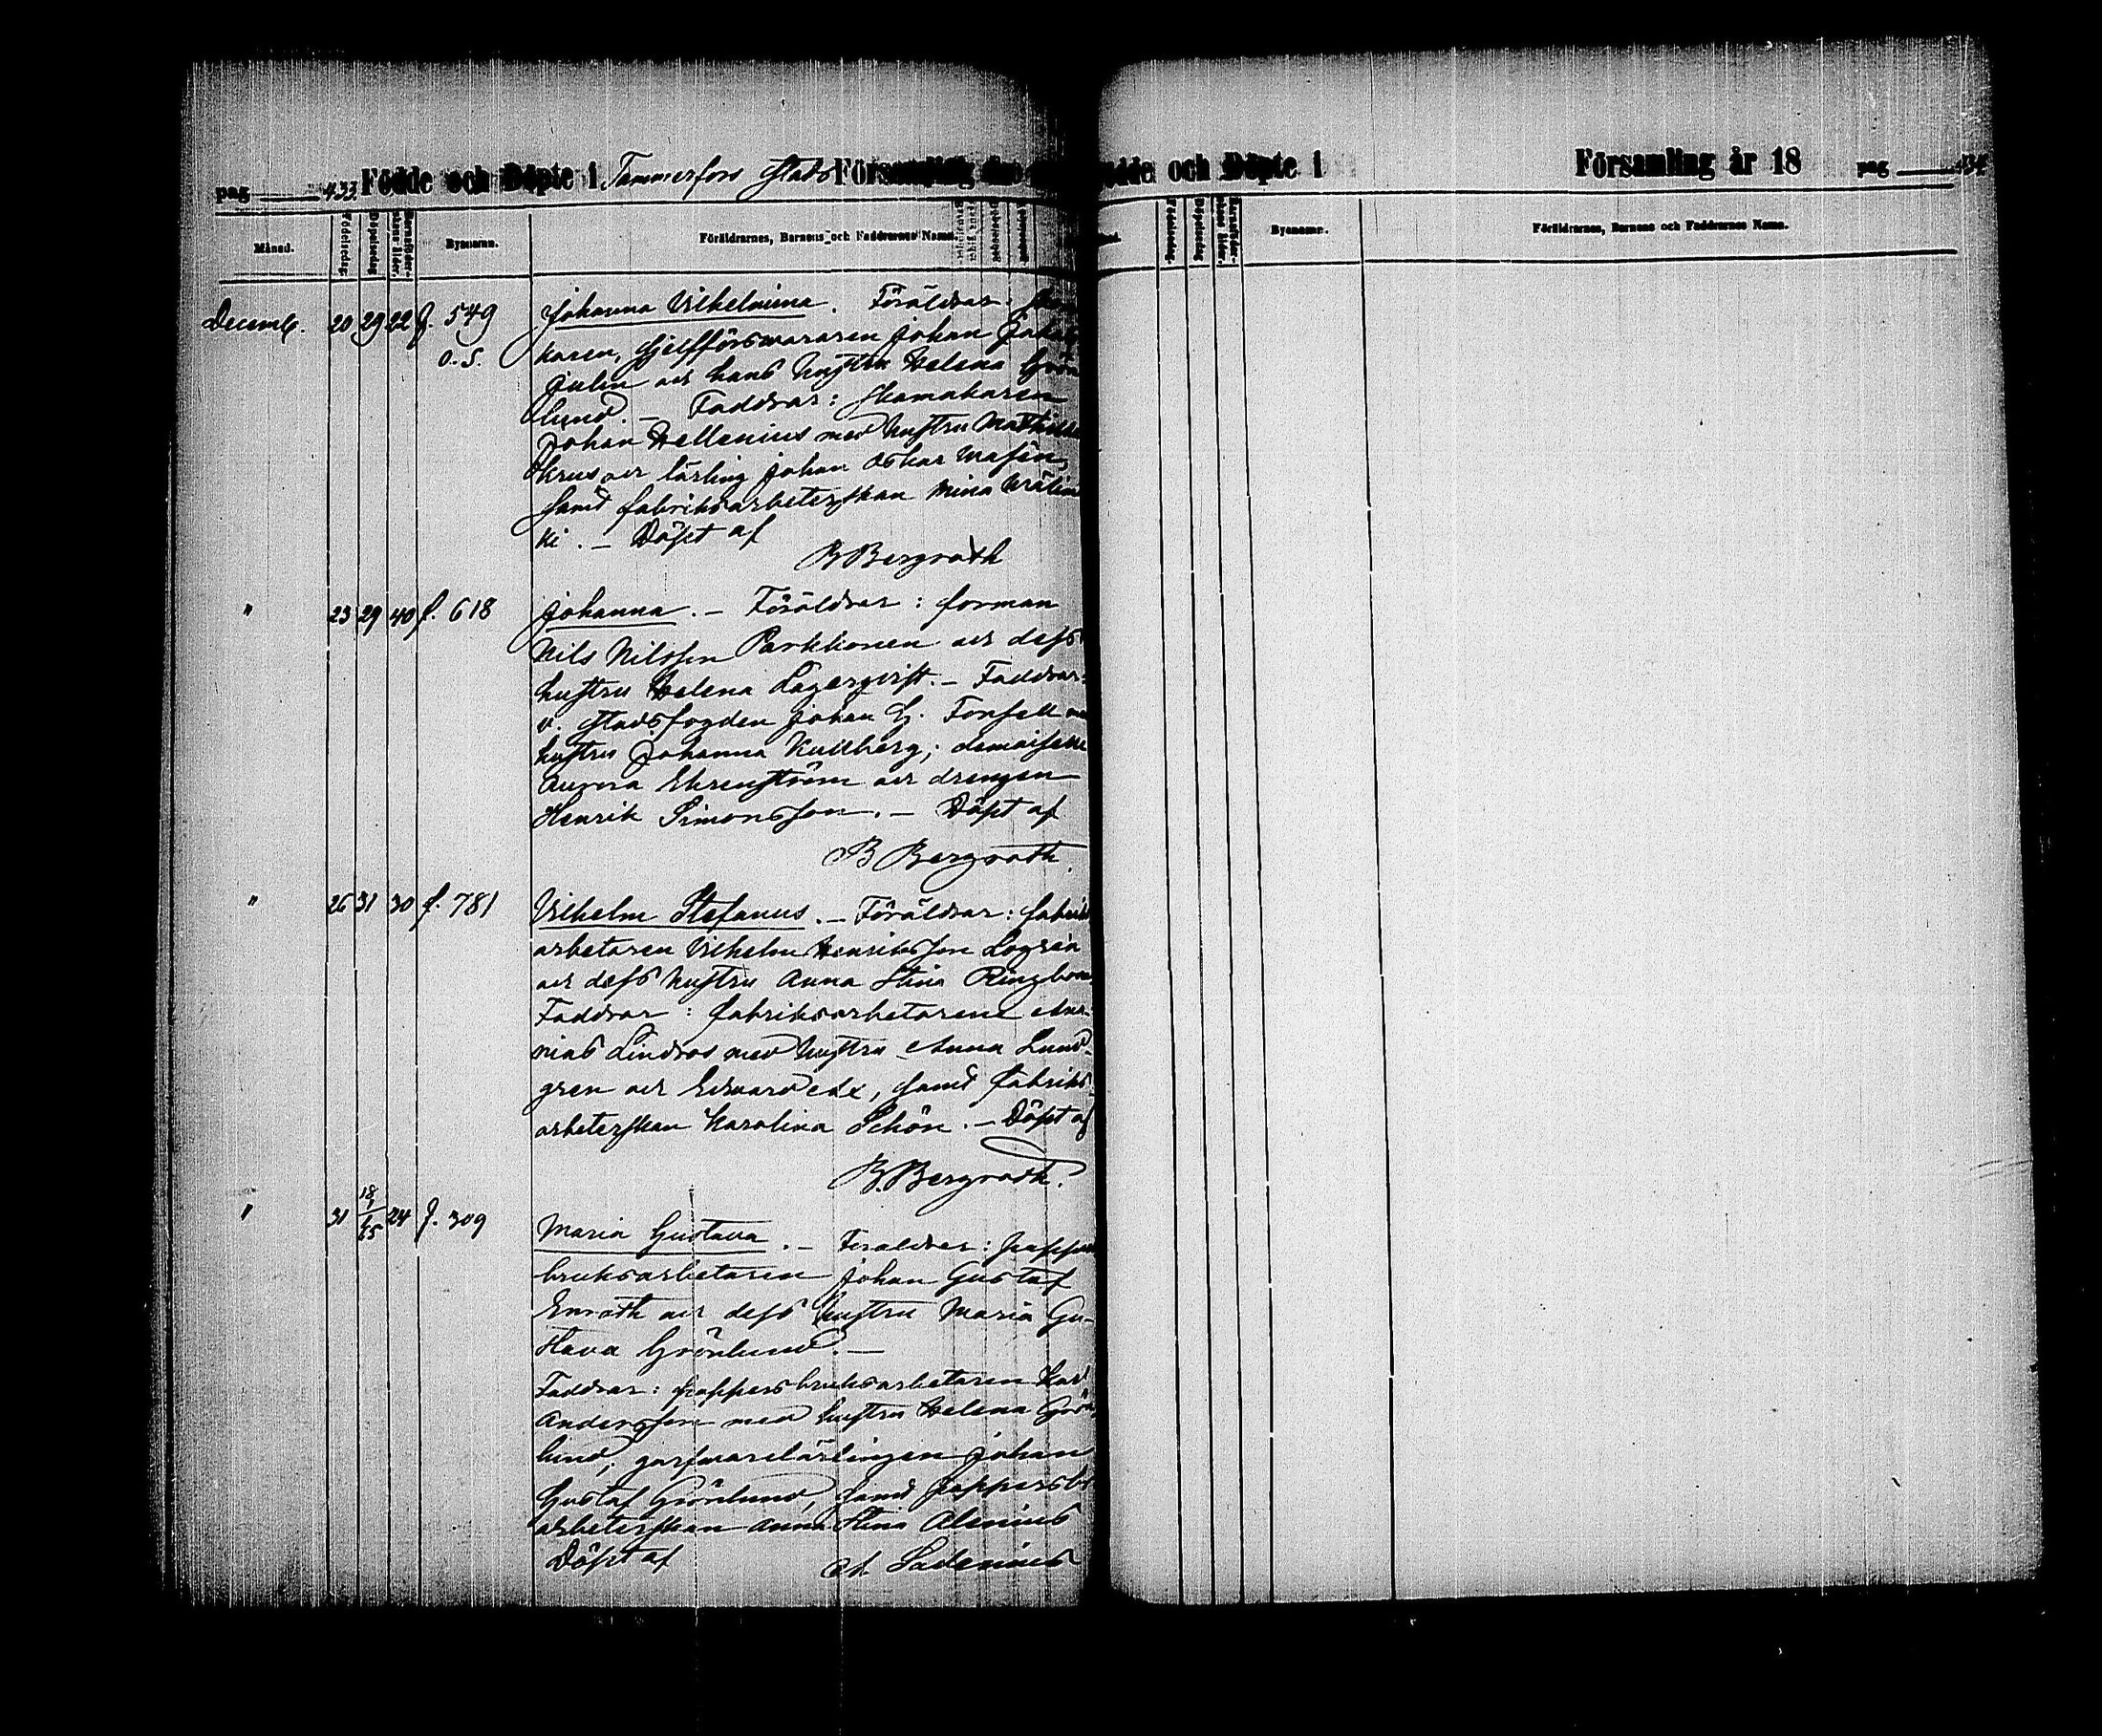 pag 433. Födde och Döpte i Tammerfors Stads Församling
Månad. Födelsedag. Döpelsedag Barnaföderskans ålder. Bynamn. Föräldrarnes, Barnens och Faddrarnes Namn.
Decemb. 20 29 22 f. 549 Johanna Vilhelmina. Föräldrar:
o.S. karen, sjelfförsvararen Johan
Julin och hans hustru Helena Grön
lund. – Faddrar: skomakaren
Johan Hellenius med hustru Mathilda
Krus och lärling Johan Oskar
samt fabriksarbeterskan Mina
ki. – Döpt af
B Bergroth
" 23 29 40 f. 618 Johanna. – Föräldrar: forman
Nils Nilsson Parkkonen och dess
hustru Helena Lagerqvist. – Faddrar:
v. stadsfogden Johan G. Forsell
hustru Johanna Kullberg; demoiselle
Aurora Ehrenström och drengen
Henrik Simonsson. – Döpt af
B Bergroth.
" 26 31 30 f. 781 Vilhelm Stefanus. – Föräldrar: fabriks
arbetaren Vilhelm Henriksson Logrén
och dess hustru Anna Stina Ringbom
Faddrar: fabriksarbetarene
nias Lindros med hustru Anna Lund-
gren och Edvard Ek, samt fabriks
arbeterskan Karolina Schön. – Döpt af
B. Bergroth.
" 31 18/1 65 24 f. 309 Maria Gustava. – Föräldrar: pappers
bruksarbetaren Johan Gustaf
Enroth och dess hustru Maria Gu-
stava Grönlund. –
Faddrar: pappersbruksarbetaren Karl
Andersson med hustru Helena Grön
lund, garfvarelärlingen Johan
Gustaf Grönlund, samt pappersbr
arbeterskan Anna Stina Alenius
Döpt af A. Ladenius
Födde och Döpte i Församling år 18 pag 434
Födelsedag. Döpelsedag Barnaföderskans ålder. Bynamn. Föräldrarnes, Barnens och Faddrarnes Namn.